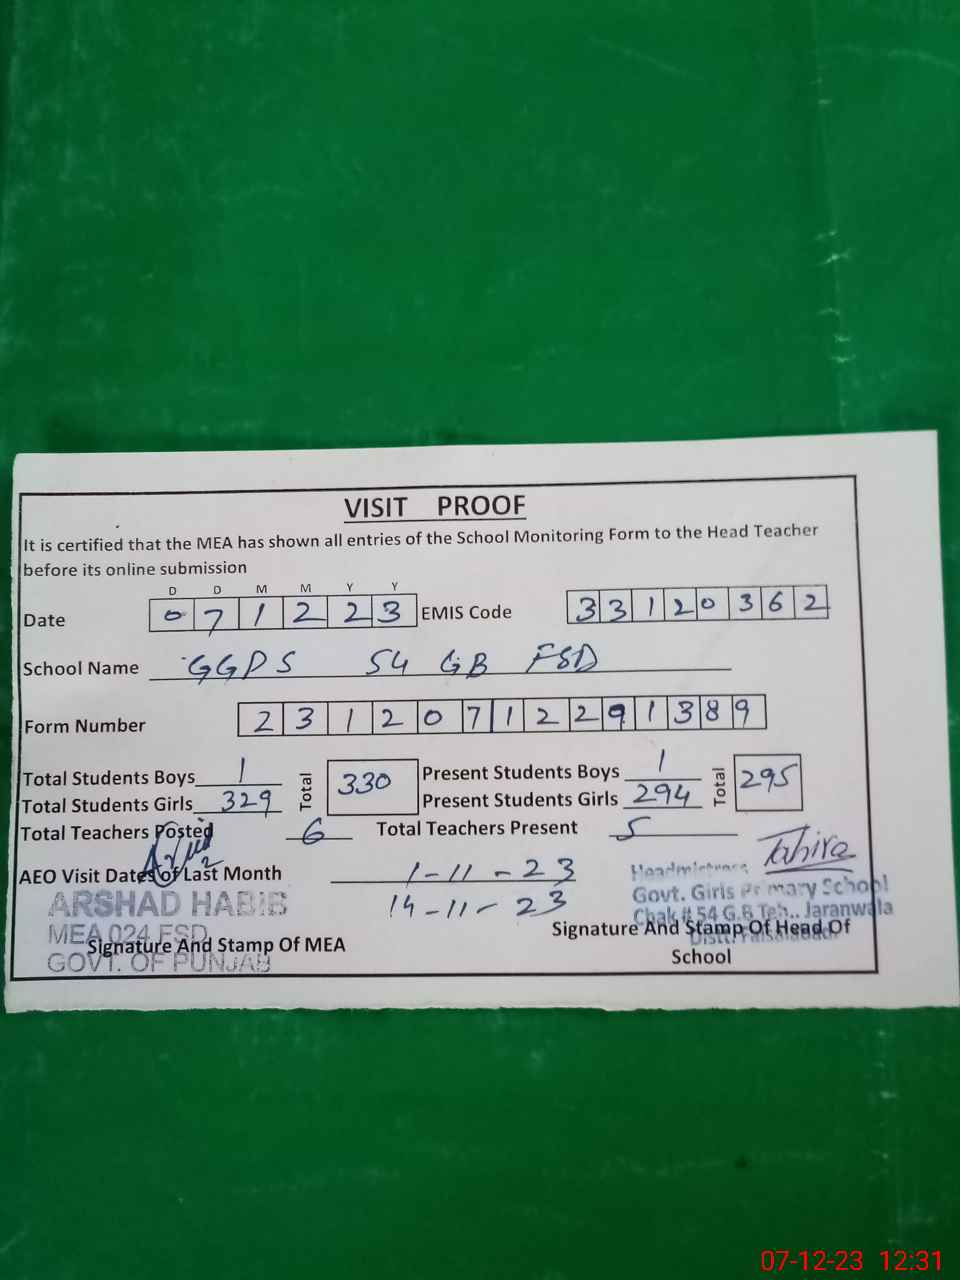 VISIT PROOF
It is certified that the MEA has shown all entries of the School Monitoring Form to the Head Teacher
before its online submission
D D M M Y Y
Date 0 7 1 2 2 3 EMIS Code 3 3 1 2 0 3 6 2
School Name GGPS 54 GB FSD
Form Number 2 3 1 2 0 7 1 2 2 9 1 3 8 9
Total Students Boys 1 Total 330 Present Students Boys 1 Total 295
Total Students Girls 329 Present Students Girls 294
Total Teachers Posted 6 Total Teachers Present 5
Tahira
AEO Visit Dates of Last Month 1-11-23
14-11-23
Headmistress
Govt. Girls Primary School
Chak # 54 G.B Teh.. Jaranwala
Distt. Faisalabad
ARSHAD HABIB
MEA 024 FSD
GOVT. OF PUNJAB
Signature And Stamp Of MEA
Signature And Stamp Of Head Of
School
07-12-23 12:31